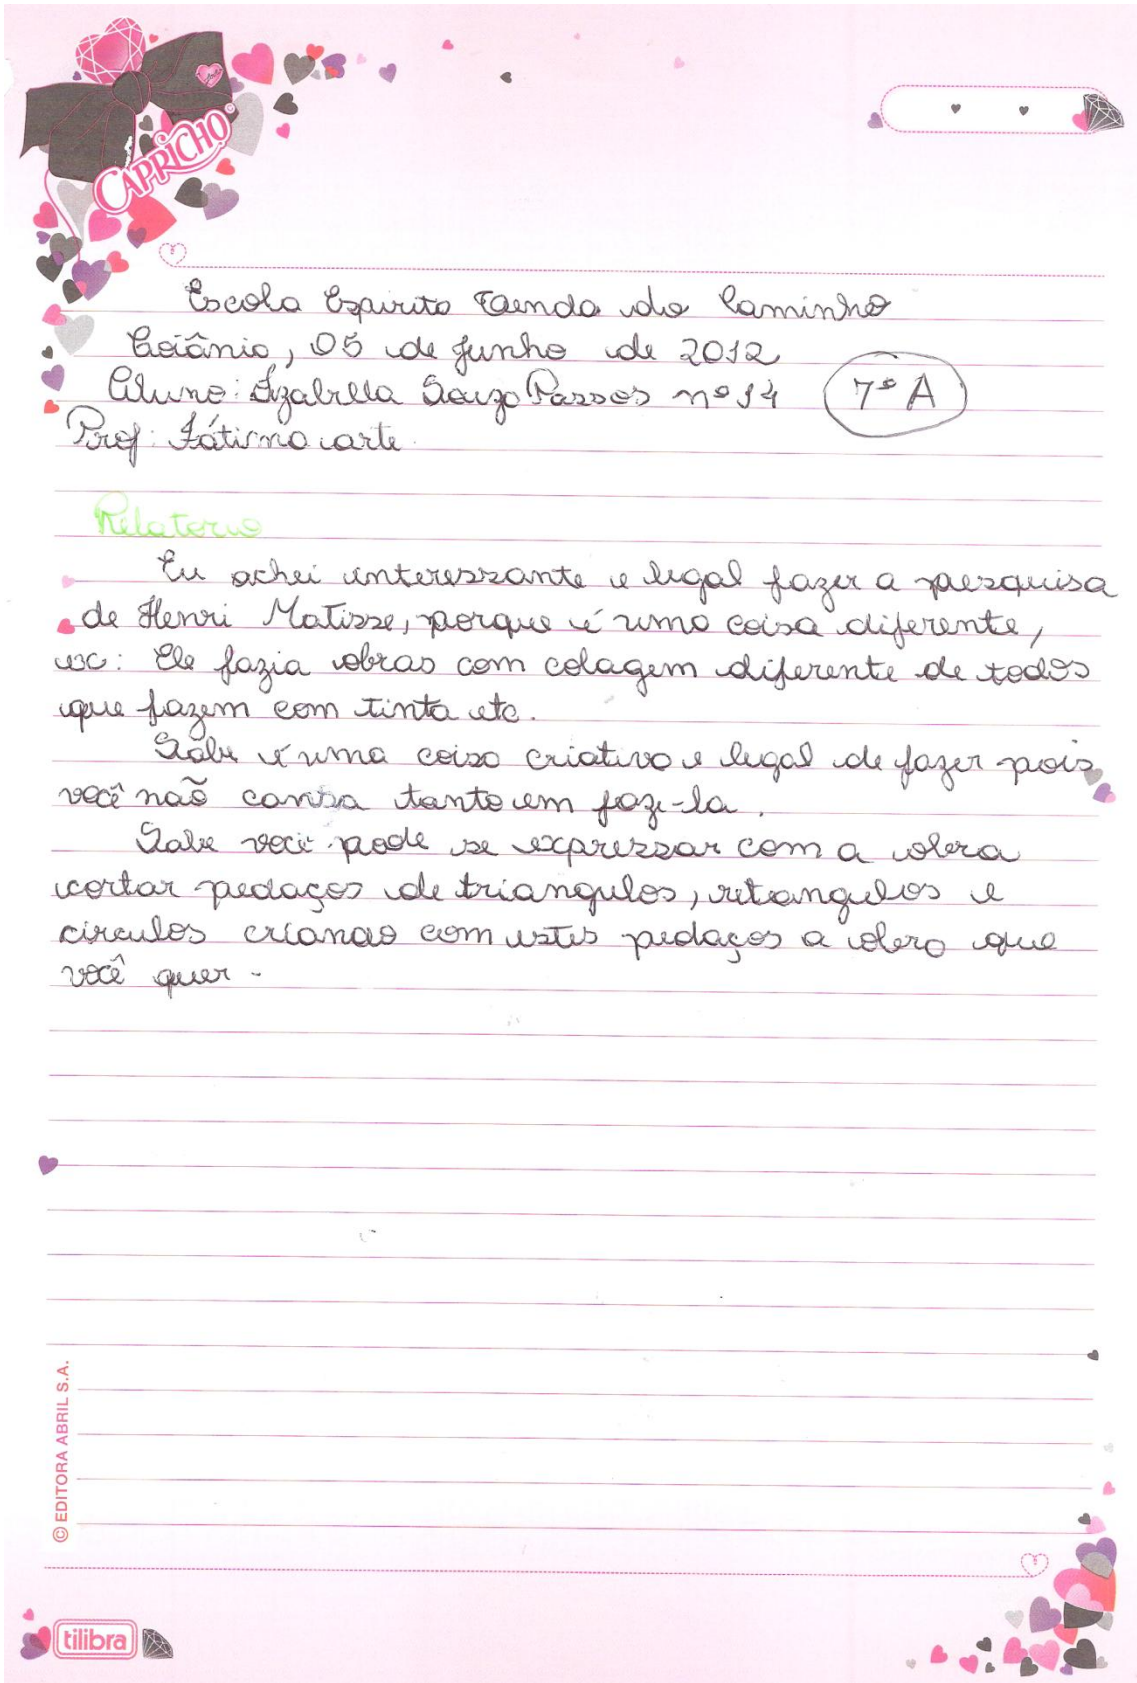 CAPRICHO
Escola Espirito Tenda do Caminho
Goiânia, 05 de Junho de 2012
Aluno: Izabella Souza Passos nº 14 7º A
Prof: Fátima arte.
Relatorio
Eu achei interessante e legal fazer a pesquisa
de Henri Matisse, porque é uma coisa diferente,
ex: Ele fazia obras com colagem diferente de todos
que fazem com tinta etc.
Sabe é uma coisa criativa e legal de fazer pois
você não cansa tanto em faze-la.
Sabe você pode se expressar com a obra
cortar pedaços de triangulos, retangulos e
circulos criando com estes pedaços a obra que
você quer.
© EDITORA ABRIL S.A.
tilibra